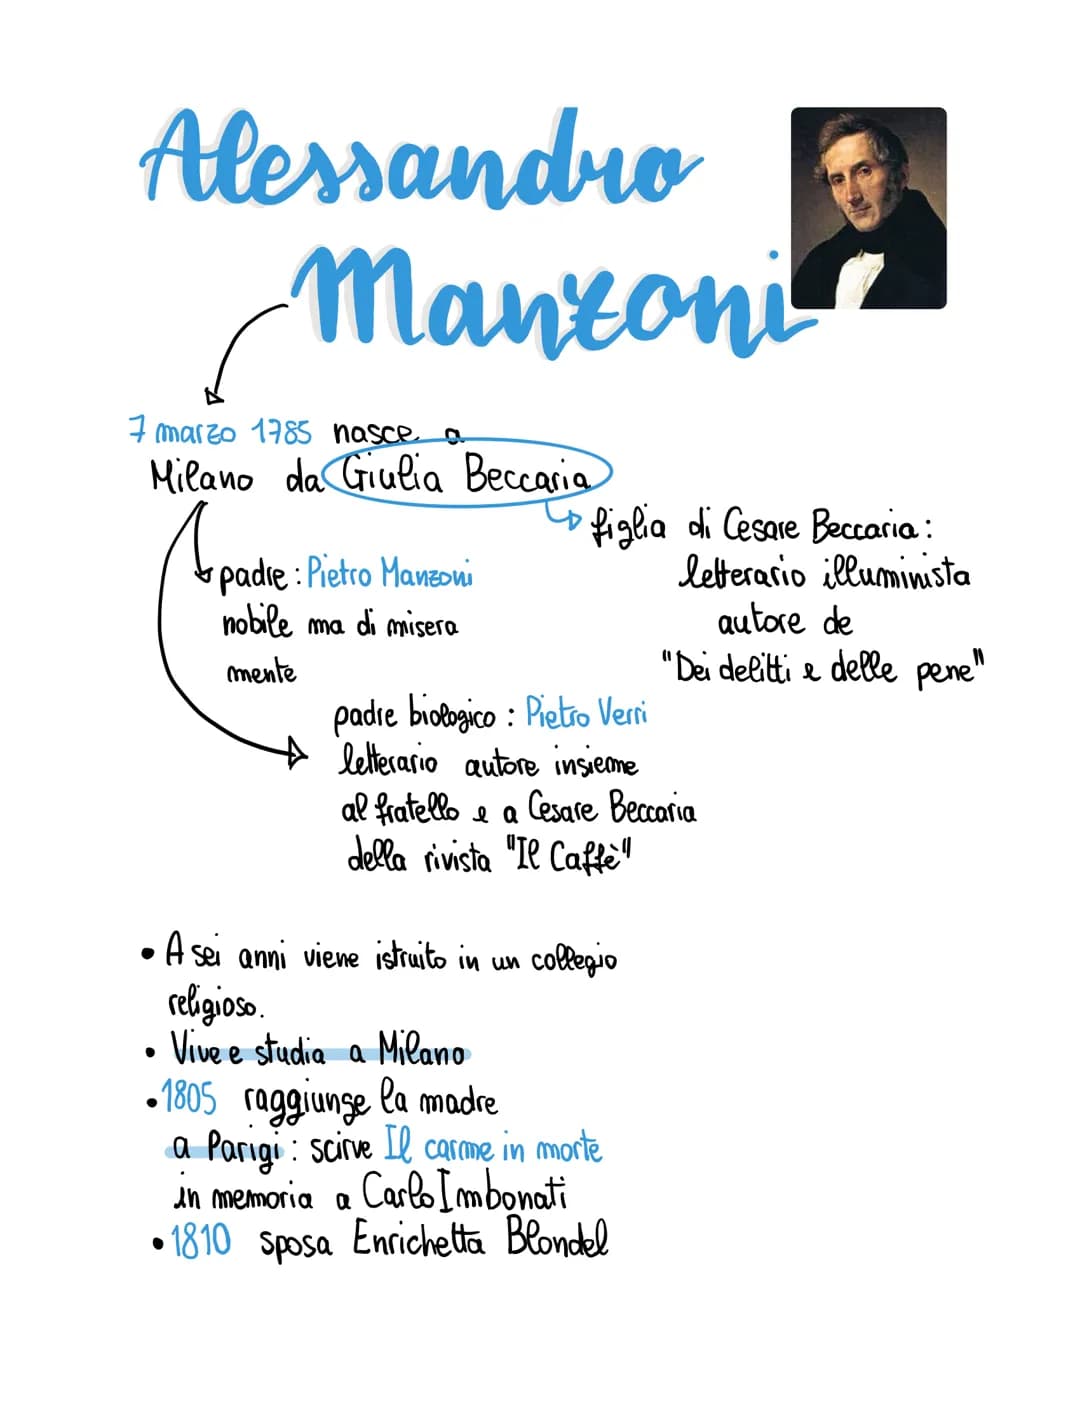 Alessandro
Manzoni
7 marzo 1785 nasce a
Milano da Giulia Beccaria
figlia di Cesare Beccaria:
letterario illuminista
autore de
"Dei delitti e delle pene"
padre: Pietro Manzoni
nobile ma di misera
mente
padre biologico: Pietro Verri
letterario autore insieme
al fratello e a Cesare Beccaria
della rivista "Il Caffè"
• A sei anni viene istruito in un collegio
religioso.
• Vive e studia a Milano
• 1805 raggiunge la madre
a Parigi: scirve Il carme in morte
in memoria a Carlo Imbonati
• 1810 sposa Enrichetta Blondel